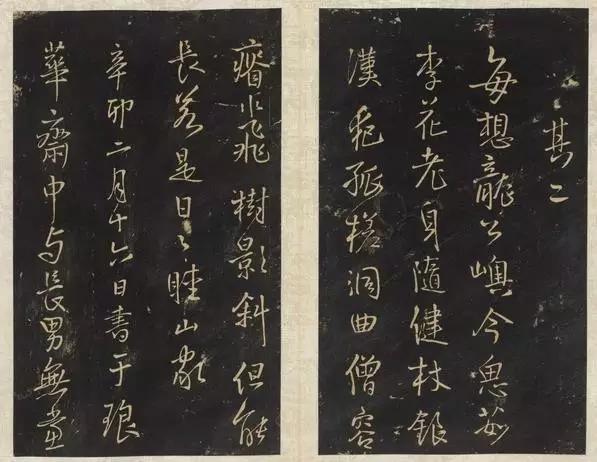 其二
每想龍公嶼今茹
李花老身隨健杖銀
漢犯孤槎洞曲僧容
瘠水飛樹影斜但能
長若是日々睡山家
辛卯二月十六日書于琅
華齋中与長男無